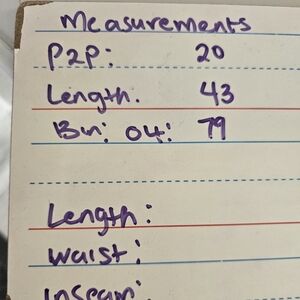 Measurements
P2P: 20
Length. 43
Bn: 04: 79
Length:
Waist:
Inseam: